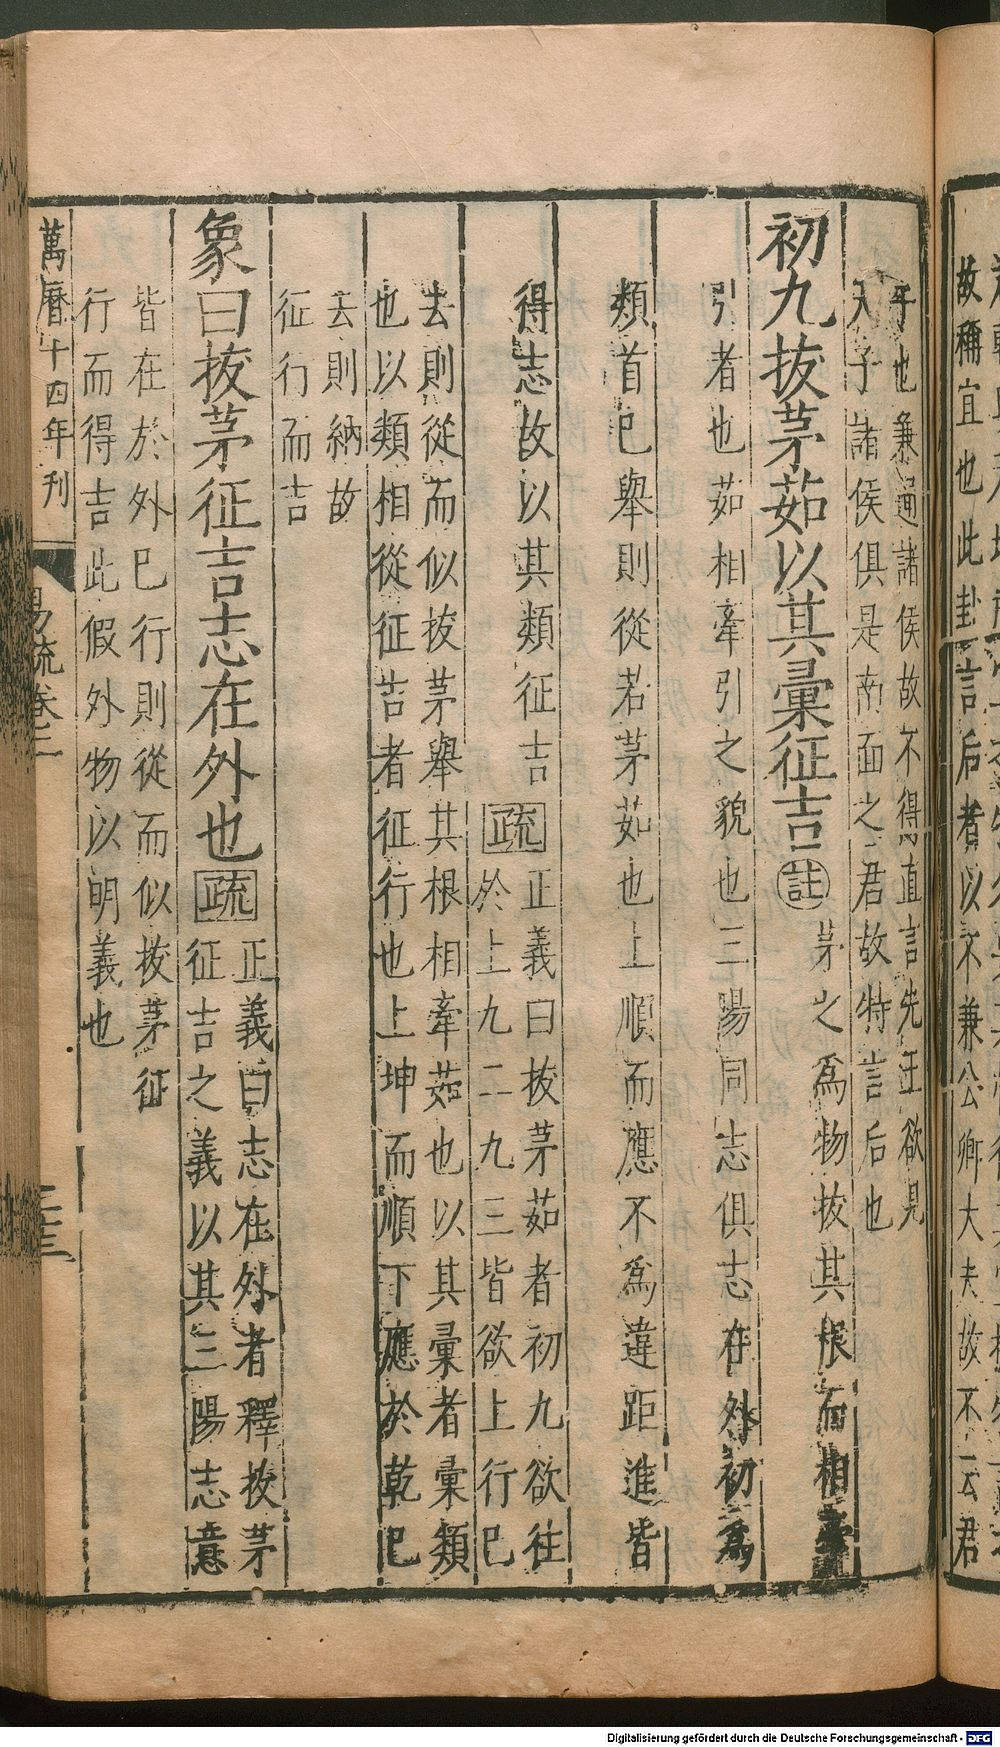 子也兼通諸侯故不得直言先王欲見
天子諸侯俱是南面之君故特言后也
初九拔茅茹以其彙征吉 註 茅之爲物拔其根而相牽
引者也茹相牽引之貌也三陽同志俱志在外初爲
類首已舉則從若茅茹也上順而應不爲違距進皆
得志故以其類征吉 疏 正義曰拔茅茹者初九欲往
於上九二九三皆欲上行已
去則從而似拔茅舉其根相牽茹也以其彙者彙類
也以類相從征吉者征行也上坤而順下應於乾已
去則納故
征行而吉
象曰拔茅征吉志在外也 疏 正義曰志在外者釋拔茅
征吉之義以其三陽志意
皆在於外已行則從而似拔茅征
行而得吉此假外物以明義也
萬曆十四年刊
易疏卷二
故稱宜也此卦言后者以不兼公卿大夫故不云君
Digitalisierung gefördert durch die Deutsche Forschungsgemeinschaft - DFG